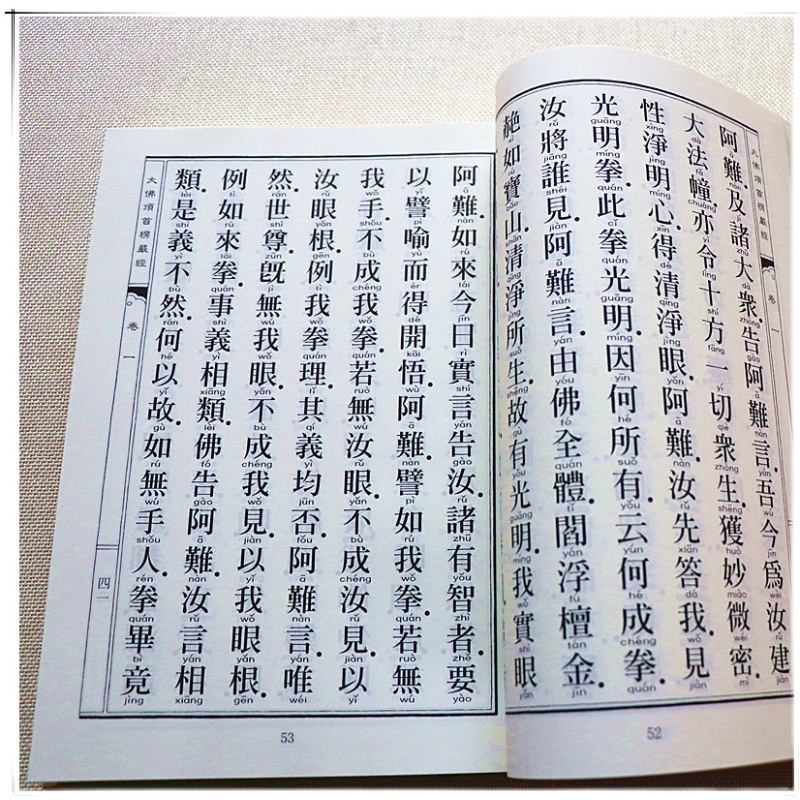 大佛頂首楞嚴經 卷一
阿難.及諸大衆.告阿難言.吾今爲汝建
大法幢.亦令十方一切衆生.獲妙微密.
性淨明心.得清淨眼.阿難.汝先答我.見
光明拳.此拳光明.因何所有.云何成拳.
汝將誰見.阿難言.由佛全體.閻浮檀金.
赩如寶山.清淨所生.故有光明.我實眼
52
阿難.如來今日實言告汝.諸有智者.要
以譬喻而得開悟.阿難.譬如我拳.若無
我手.不成我拳.若無汝眼.不成汝見.以
汝眼根.例我拳理.其義均否.阿難言.唯
然.世尊.旣無我眼.不成我見.以我眼根.
例如來拳.事義相類.佛告阿難.汝言相
類.是義不然.何以故.如無手人.拳畢竟
大佛頂首楞嚴經 卷一 四二
53